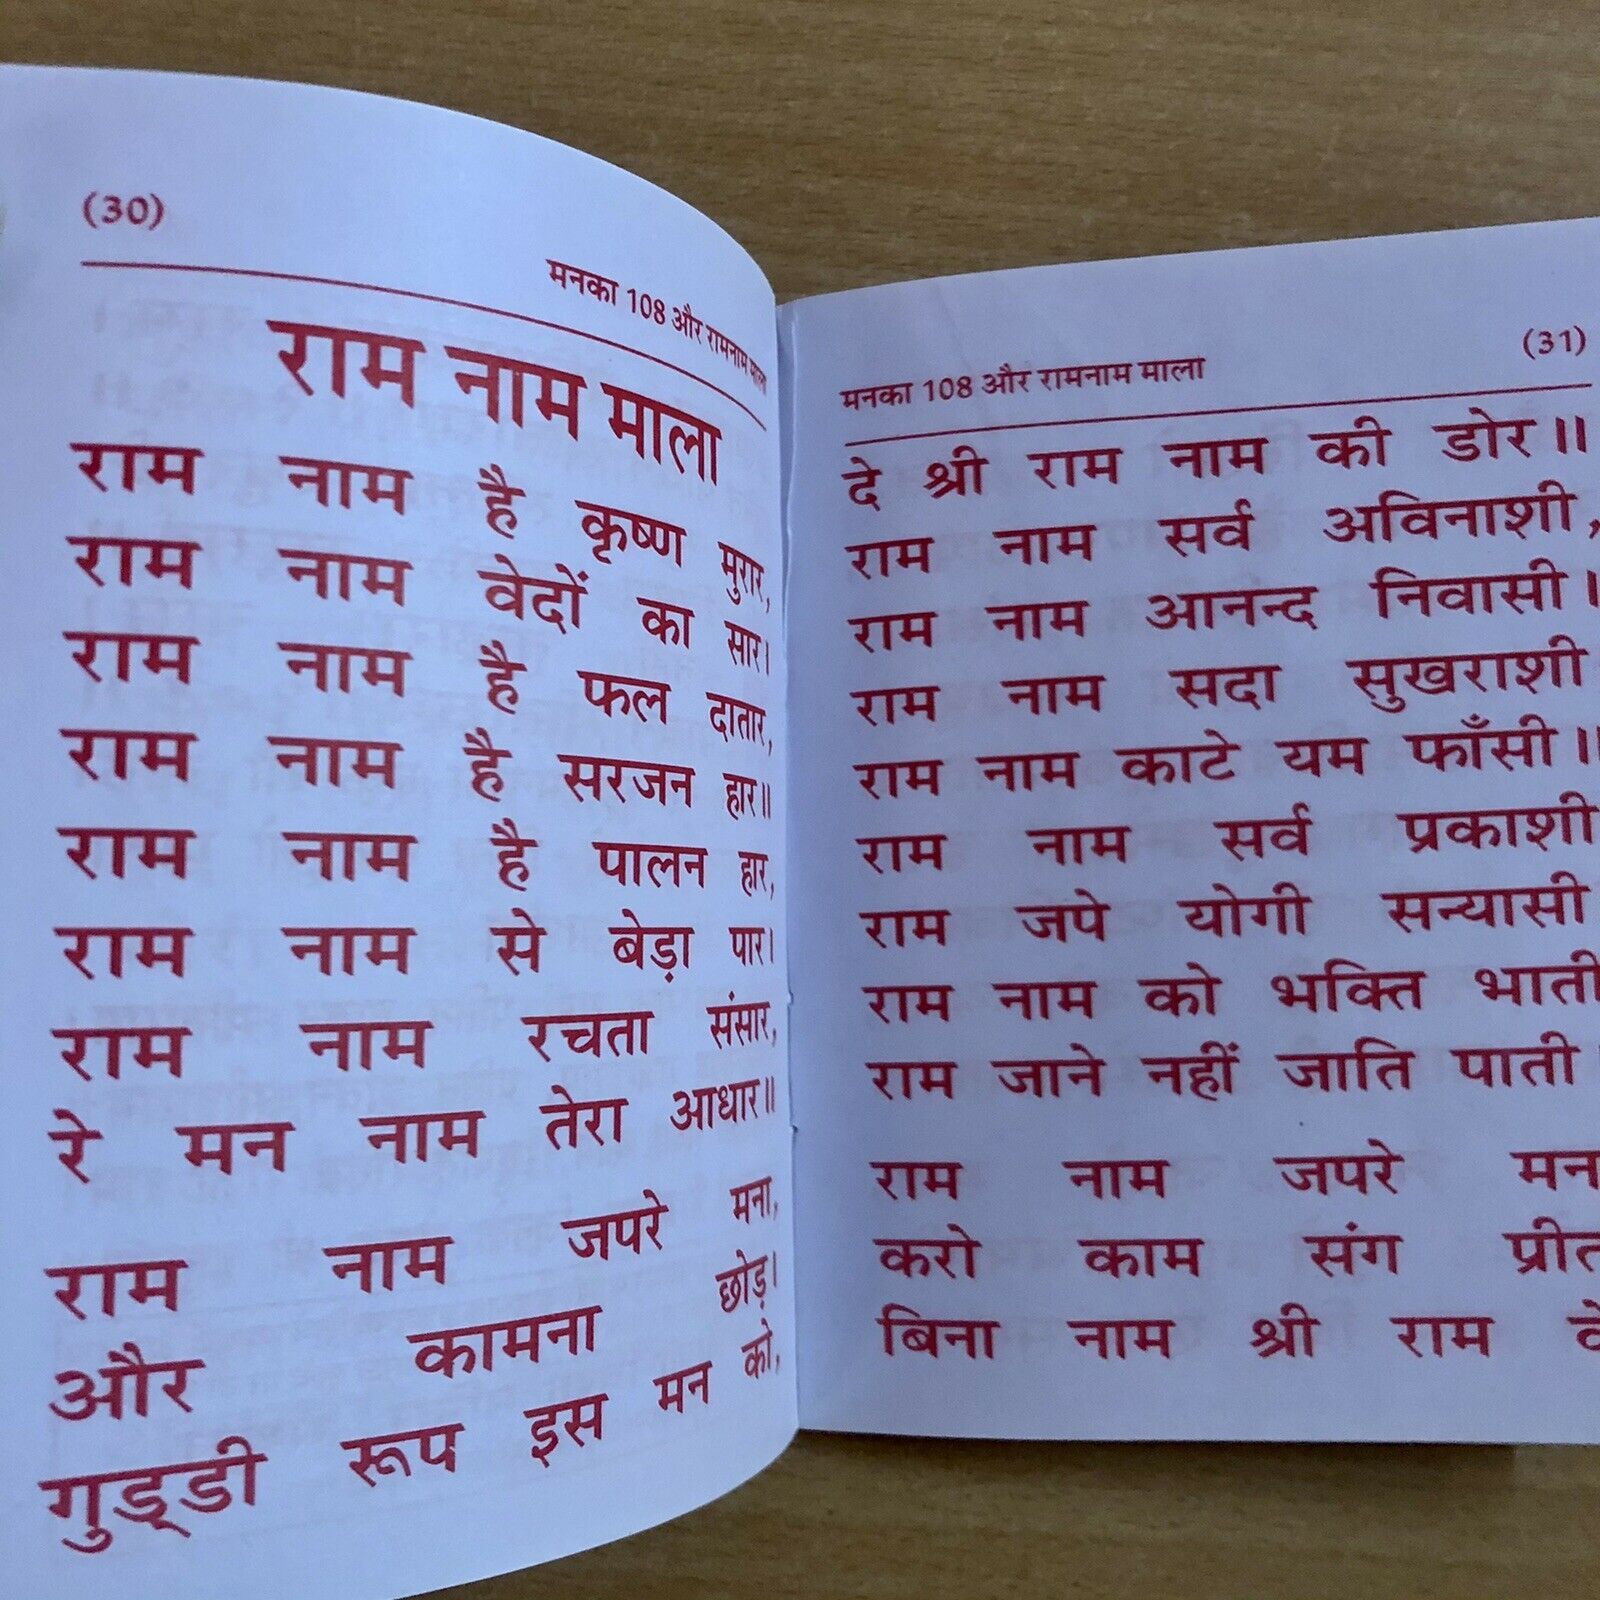 (30)
मनका 108 और रामनाम माला
राम नाम माला
राम नाम है कृष्ण मुरार,
राम नाम वेदों का सार।
राम नाम है फल दातार,
राम नाम है सरजन हार॥
राम नाम है पालन हार,
राम नाम से बेड़ा पार।
राम नाम रचता संसार,
रे मन नाम तेरा आधार॥
राम नाम जपरे मना,
और कामना छोड़।
गुड्डी रूप इस मन को,
(31)
मनका 108 और रामनाम माला
दे श्री राम नाम की डोर॥
राम नाम सर्व अविनाशी,
राम नाम आनन्द निवासी।
राम नाम सदा सुखराशी
राम नाम काटे यम फाँसी॥
राम नाम सर्व प्रकाशी
राम जपे योगी सन्यासी
राम नाम को भक्ति भाती
राम जाने नहीं जाति पाती
राम नाम जपरे मन
करो काम संग प्रीत
बिना नाम श्री राम के